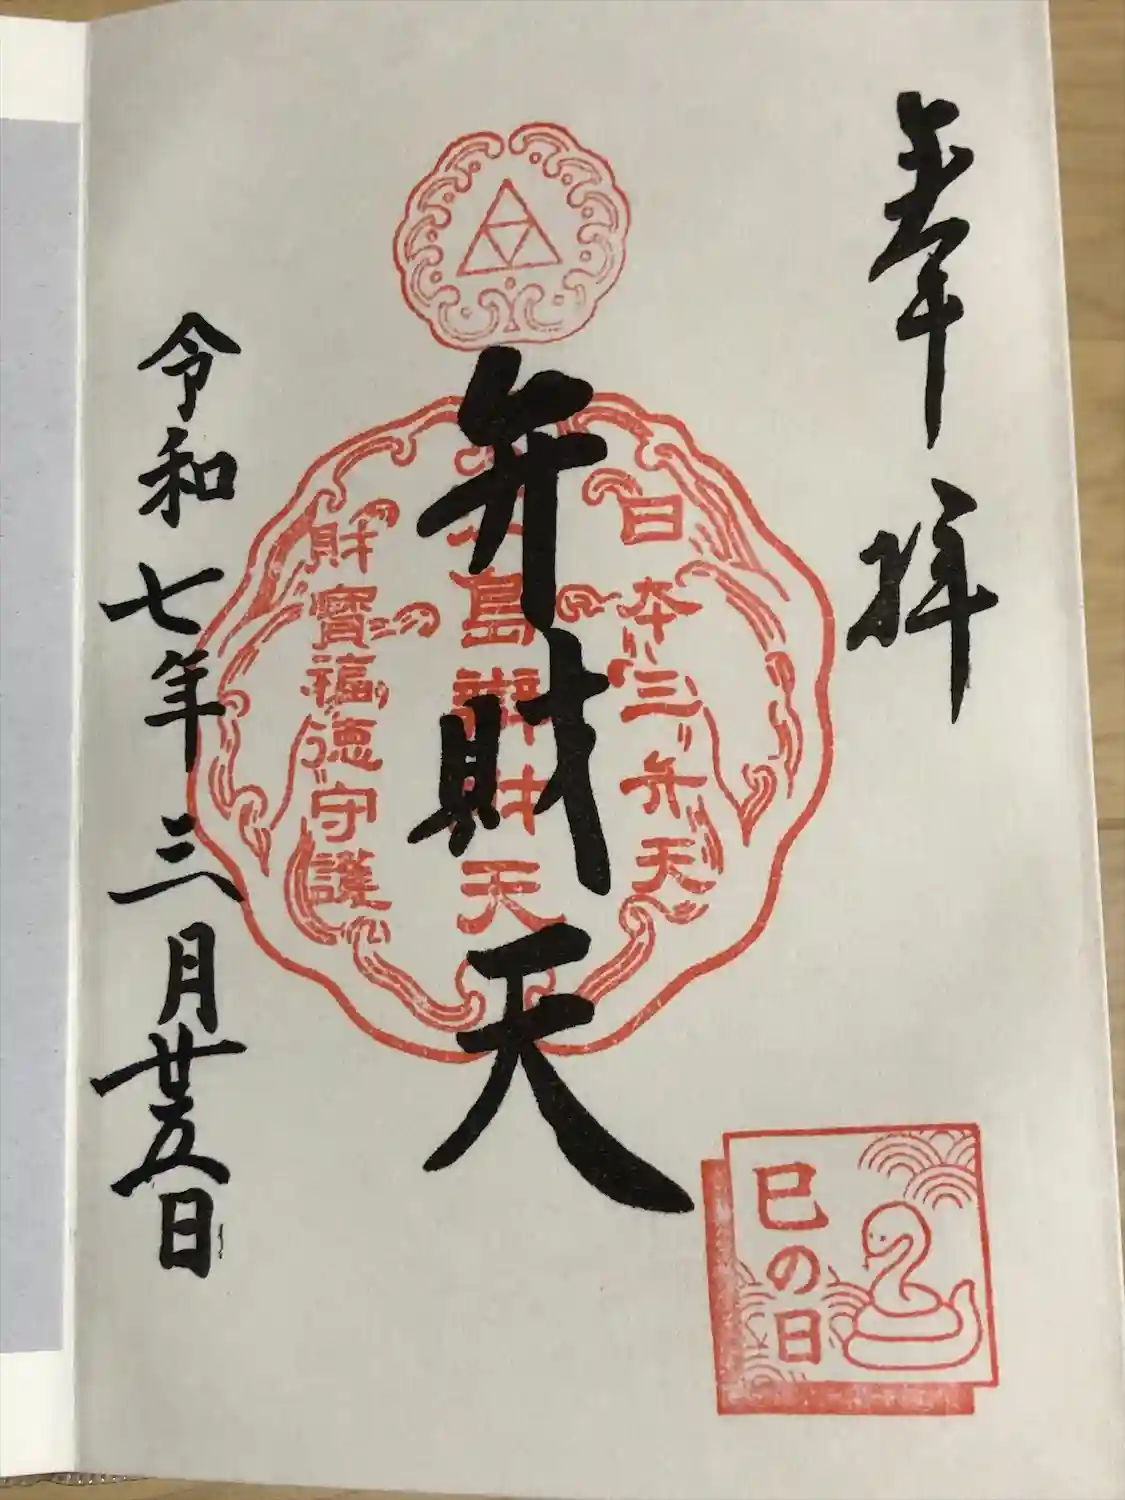 奉拝
日本三弁天
島辨財天
財寶福徳守護
弁財天
令和七年三月廿五日
巳の日